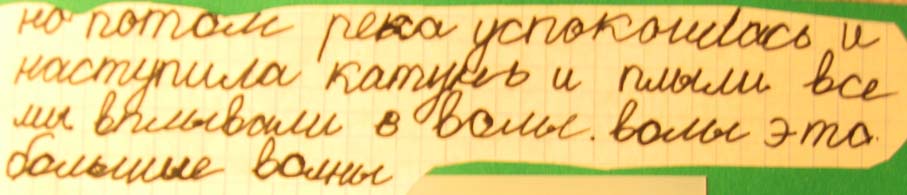 но потом река успокоилась и
наступила катунь и плыли все
мы вплывали в валы. валы это
большие волны